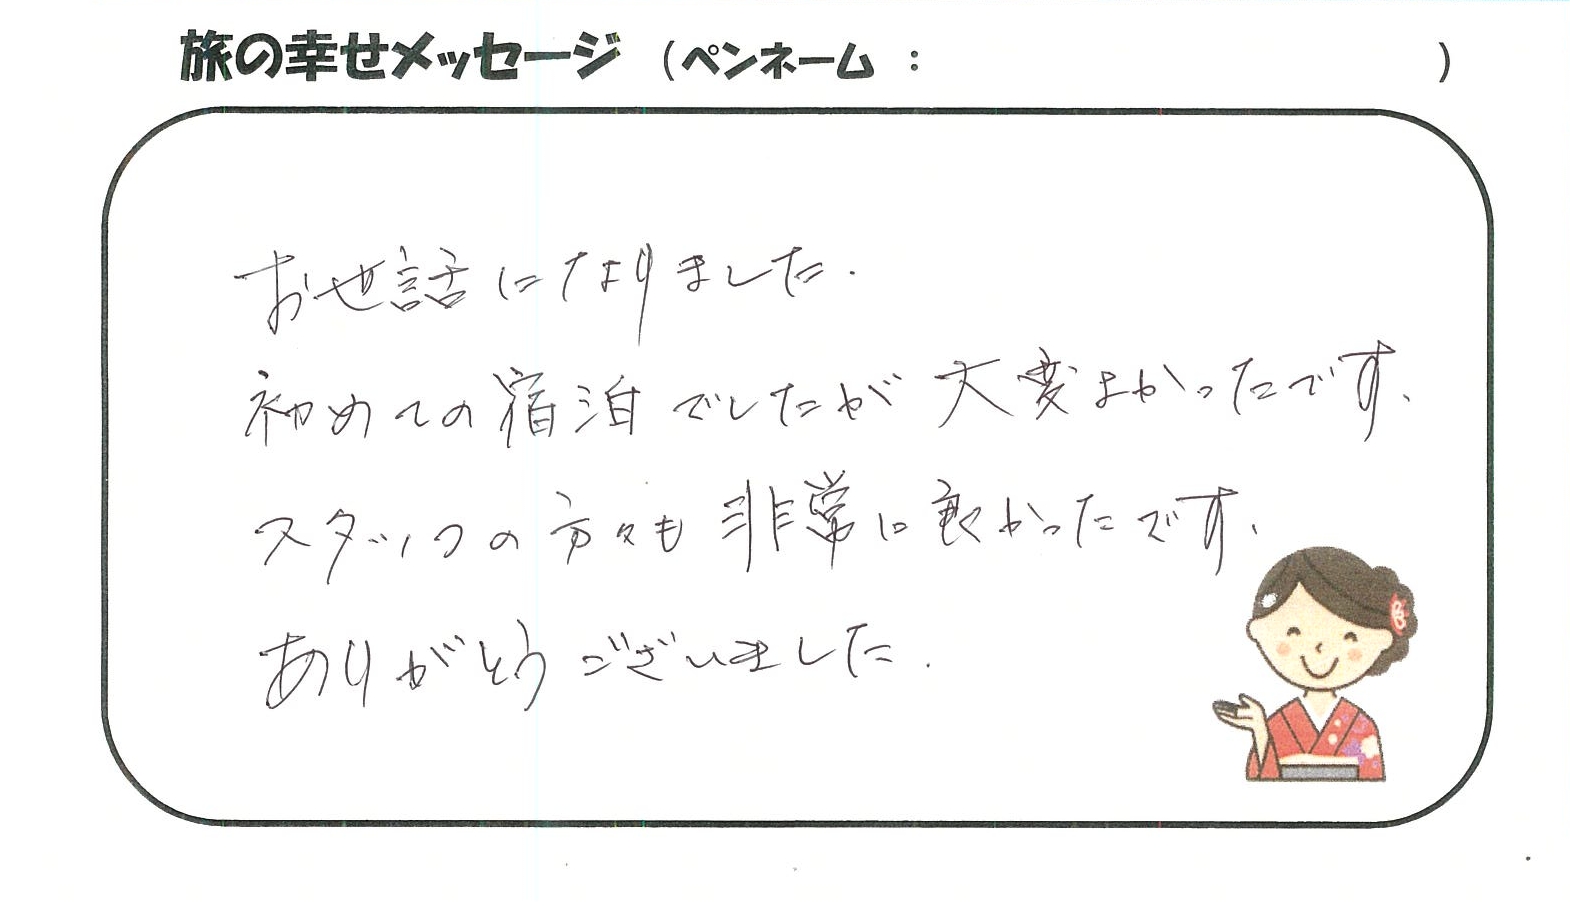 旅の幸せメッセージ （ペンネーム ： ）
お世話になりました.
初めての宿泊でしたが 大変よかったです.
スタッフの方々も 非常に良かったです.
ありがとうございました.